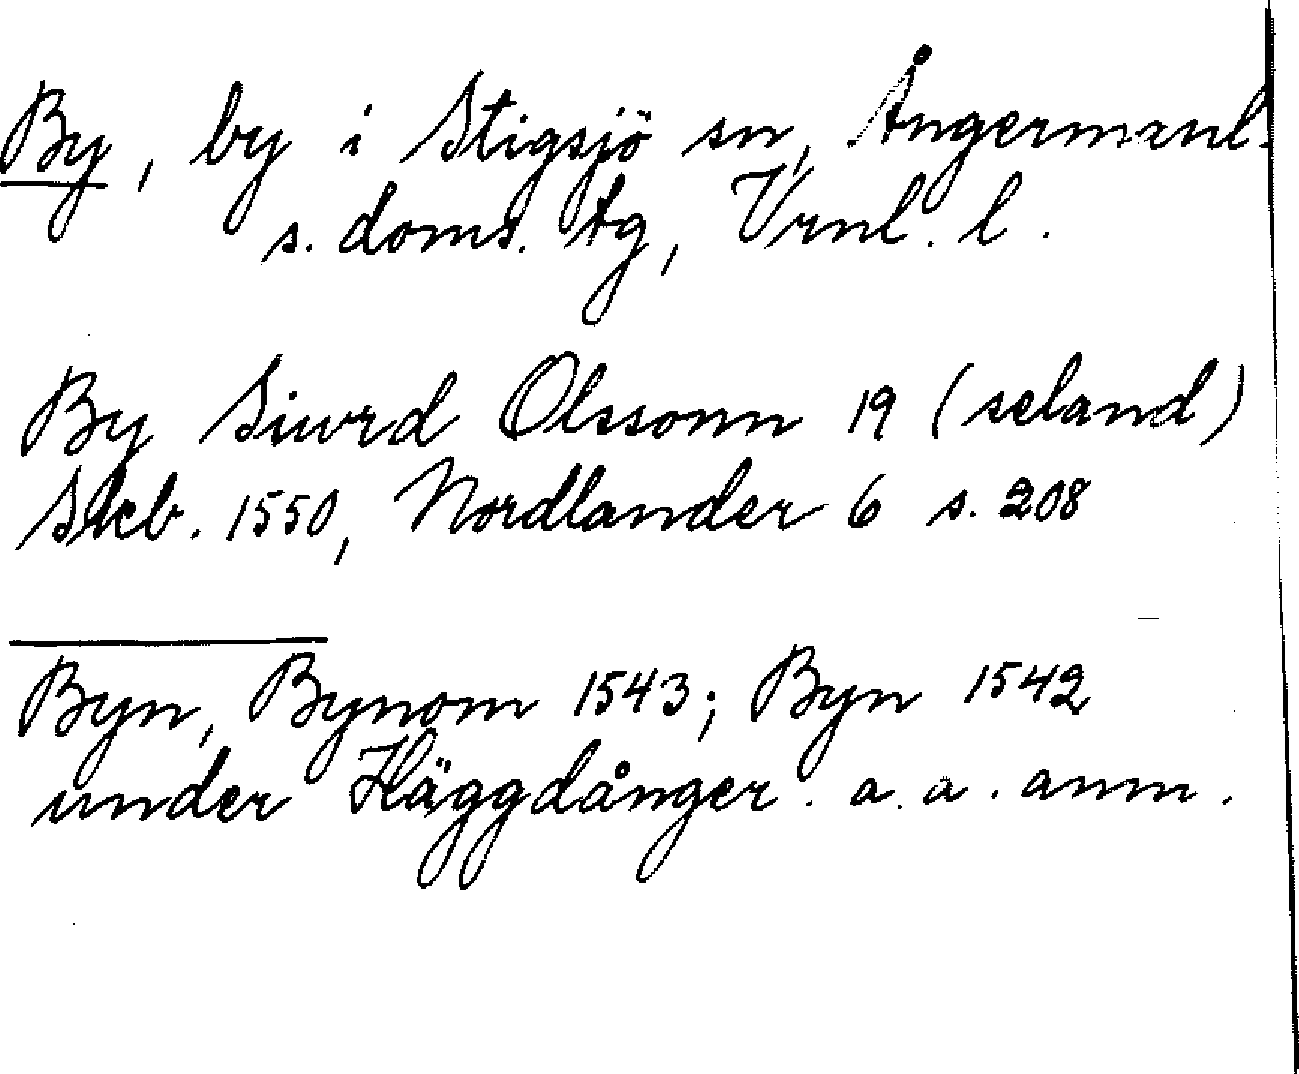 By, by i Stigsjö sn, Ångermanl.
s. doms. tg, Vrnl. l.
By Siurd Olssonn 19 (seland)
Skb. 1550, Nordlander 6 s. 208
Byn, Bynom 1543; Byn 1542
under Häggdånger. a. a. anm.